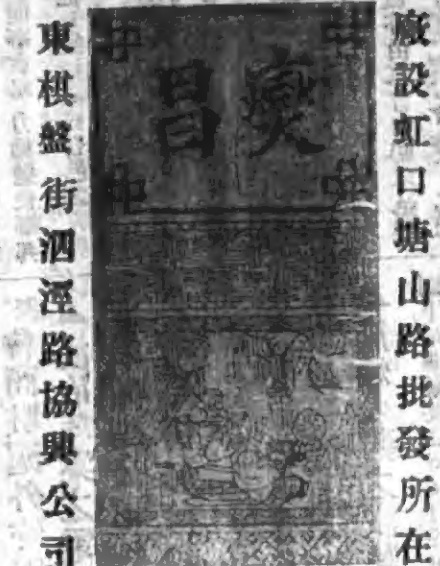 廠設虹口塘山路批發所在
燮昌
東棋盤街泗涇路協興公司